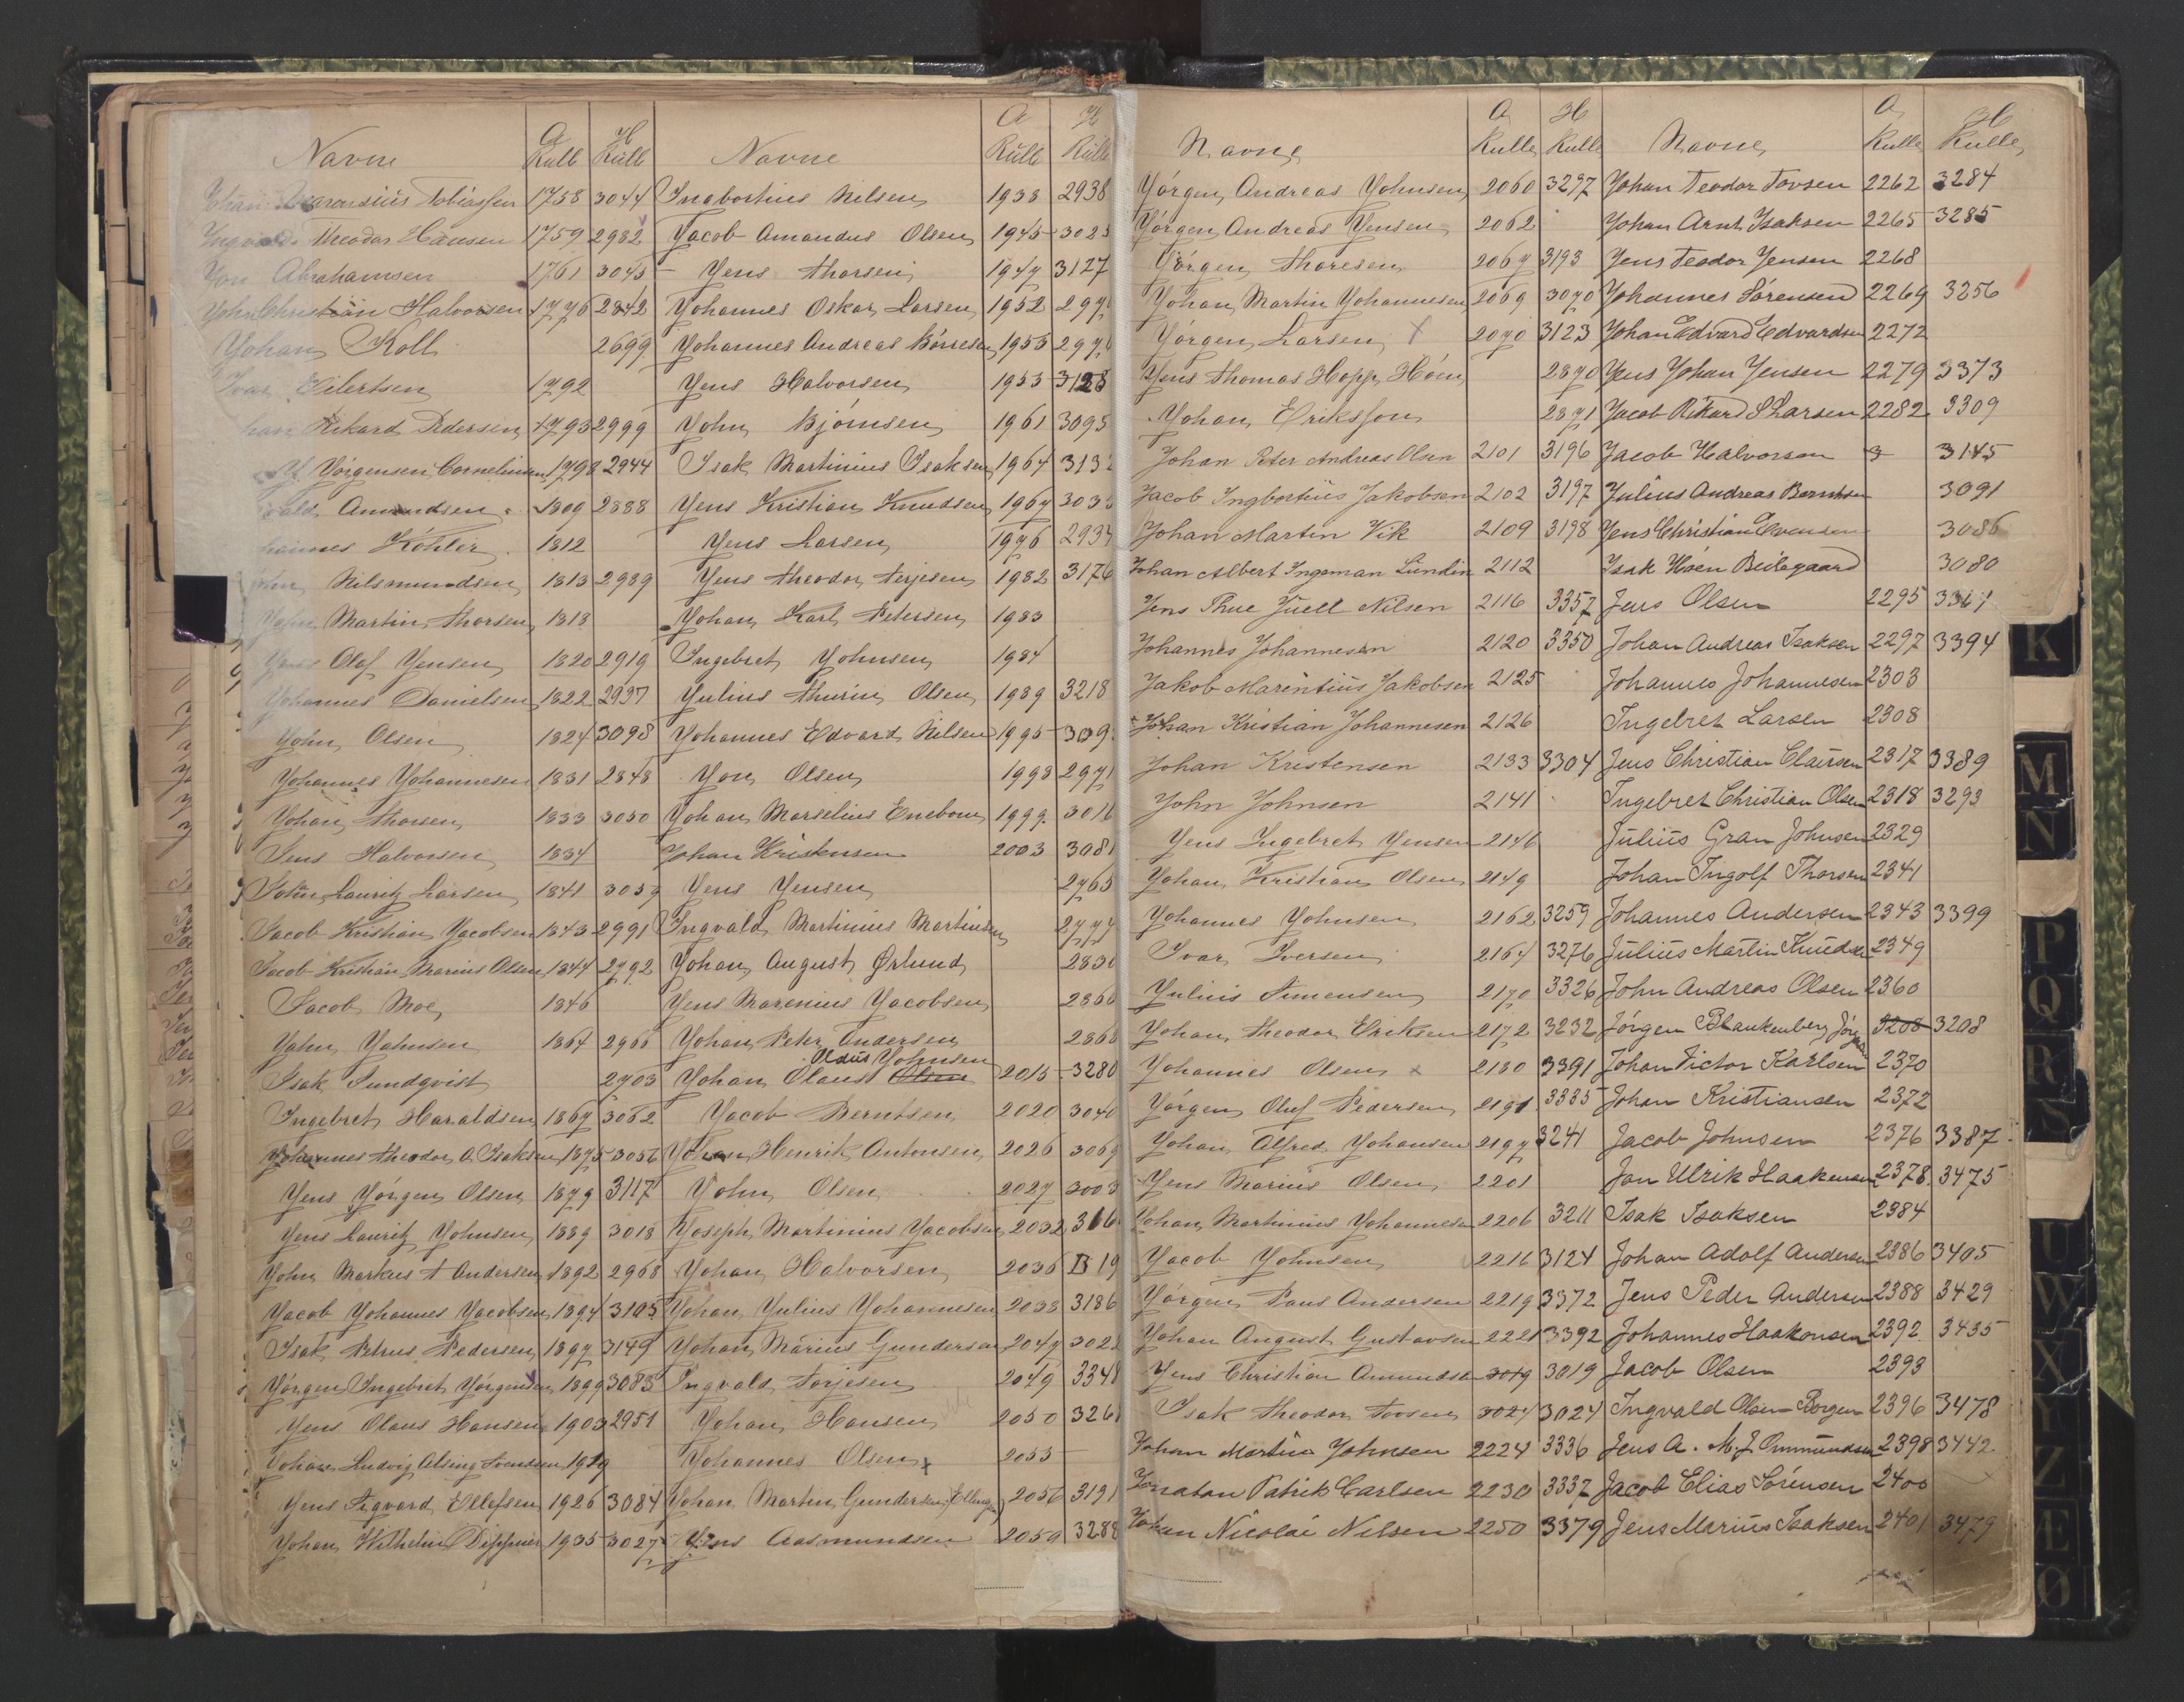 Navne A Rull H Rull
Tobiassen 1758 3044
Theodor Hansen 1759 2982
Jon Abrahamsen 1761 3045
John Christian Halvorsen 1776 2842
Johan Koll 2699
Ivar Eilertsen 1792
Rikard Pedersen 1793 2999
Jörgensen Cornelius 1798 2944
Amundsen 1809 2888
Köhler 1812
John Nilsmundsen 1813 2989
John Martin Thorsen 1818
Jens Olaf Jensen 1820 2919
Johannes Danielsen 1822 2937
John Olsen 1824 3098
Johannes Johannesen 1831 2848
Johan Thorsen 1833 3050
Jens Halvorsen 1834
John Lauritz Larsen 1841 3057
Jacob Kristian Jacobsen 1843 2991
Jacob Kristian Marius Olsen 1844 2792
Jacob Moe 1846
John Johnsen 1864 2966
Isak Sundqvist 2703
Ingebret Haraldsen 1867 3062
Johannes Theodor A. Isaksen 1875 3056
Jens Jörgen Olsen 1879 3117
Jens Lauritz Johnsen 1889 3018
John Markus A Andersen 1892 2968
Jacob Johannes Jacobsen 1894 3105
Isak Petrus Pedersen 1897 3149
Jörgen Ingebret Jörgensen 1899 3083
Jens Olaus Hansen 1903 2951
Johan Ludvig Alsing Svendsen 1919
Jens Sigvard Ellefsen 1926 3084
Johan Wilhelm Dippner 1935 3027
Navne A Rull H Rulle
Ingbortius Nilsen 1938 2938
Jacob Amandus Olsen 1945 302
Jens Thorsen 1947 3127
Johannes Oskar Larsen 1952 297
Johannes Andreas Börresen 1953 297
Jens Halvorsen 1955 3128
John Bjørnsen 1961 3095
Isak Martinius Isaksen 1964 313
Jens Kristian Knudsen 1967 303
Jens Larsen 1976 2937
Jens Theodor Terjesen 1982 3176
Johan Karl Petersen 1983
Ingebret Johnsen 1984
Julius Thurin Olsen 1989 3218
Johannes Edvard Nilsen 1995 309
Jon Olsen 1998 2971
Johan Marselius Enebom 1999 3016
Johan Kristensen 2003 3081
Jens Jensen 2765
Ingvald Martinius Martinsen 2777
Johan August Ørlund 2830
Jens Marenius Jacobsen 2860
Johan Peter Andersen 2868
Johan Olaus Olsen Oldus Johnsen 2015 3280
Jacob Berntsen 2020 3040
Johan Henrik Antonsen 2026 3069
John Olsen 2027 3003
Joseph Martinius Jacobsen 2032 316
Johan Halvorsen 2036 19
Johan Julius Johannesen 2038 3186
Johan Marius Gundersen 2047 302
Ingvald Torjesen 2049 3348
Johan Hansen 2050 326
Johannes Olsen x 2055
Johan Martin Gundersen 2056 3191
Jens Aasmundsen 2059 3288
Navne A Rulle H Rulle
Jörgen Andreas Johnsen 2060 3297
Jörgen Andreas Jensen 2062
Jörgen Thoresen 2067 3193
Johan Martin Johannesen 2069 3070
Jörgen Larsen x 2070 3123
Jens Thomas Hopp Höm 2870
Johan Eriksson 2871
Johan Peter Andreas Olsen 2101 3196
Jacob Ingbortius Jakobsen 2102 3197
Johan Martin Vik 2109 3198
Johan Albert Ingeman Lundin 2112
Jens Thue Juell Nilsen 2116 3357
Johannes Johannesen 2120 3350
Jakob Marentius Jakobsen 2125
Johan Kristian Johannesen 2126
Johan Kristensen 2133 3304
John Johnsen 2141
Jens Ingebret Jensen 2146
Johan Kristian Olsen 2149
Johannes Johnsen 2162 3259
Ivar Iversen 2164 3276
Julius Simensen 2170 3326
Johan Theodor Eriksen 2172 3232
Johannes Olsen x 2180 3391
Jörgen Oluf Pedersen 2191 3335
Johan Alfred Johansen 2197 3241
Jens Marius Olsen 2201
Johan Martinius Johannesen 2206 3211
Jacob Johnsen 2216 3124
Jörgen Paus Andersen 2219 3372
Johan August Gustavsen 2221 3392
Jens Christian Amundsen 3019 3019
Isak Theodor Tovsen 3024 3024
Johan Martin Johnsen 2224 3336
Jonatan Patrik Carlsen 2230 3337
Johan Nicolai Nilsen 2250 3379
Navne A Rulle H Rulle
Johan Teodor Tovsen 2262 3284
Johan Arnt Isaksen 2265 3285
Jens Teodor Jensen 2268
Johannes Sørensen 2269 3256
Johan Edvard Edvardsen 2272
Jens Johan Jensen 2279 3373
Jacob Rikard S Larsen 2282 3309
Jacob Halvorsen 3 3145
Julius Andreas Berntsen 3091
Jens Christian Evensen 3086
Isak Høen Beilegaard 3080
Jens Olsen 2295 3361
Johan Andreas Isaksen 2297 3394
Johannes Johannesen 2303
Ingebret Larsen 2308
Jens Christian Clausen 2317 3389
Ingebret Christian Olsen 2318 3293
Julius Gran Johnsen 2329
Johan Ingolf Thorsen 2341
Johannes Andersen 2343 3399
Julius Martin Knudsen 2349
John Andreas Olsen 2360
Jörgen Blankenberg 3208 3208
Johan Victor Karlsen 2370
Johan Kristiansen 2372
Jacob Johnsen 2376 3387
Jan Ulrik Haakensen 2378 3475
Isak Isaksen 2384
Johan Adolf Andersen 2386 3405
Jens Peder Andersen 2388 3429
Johannes Haakonsen 2392 3435
Jacob Olsen 2393
Ingvald Olsen Borgen 2396 3478
Jens A. M. J. Ommundsen 2398 3442
Jacob Elias Sörensen 2400
Jens Marius Isaksen 2401 3479
K
M
N
P
Q
R
S
W
X
Z
Æ
Ø